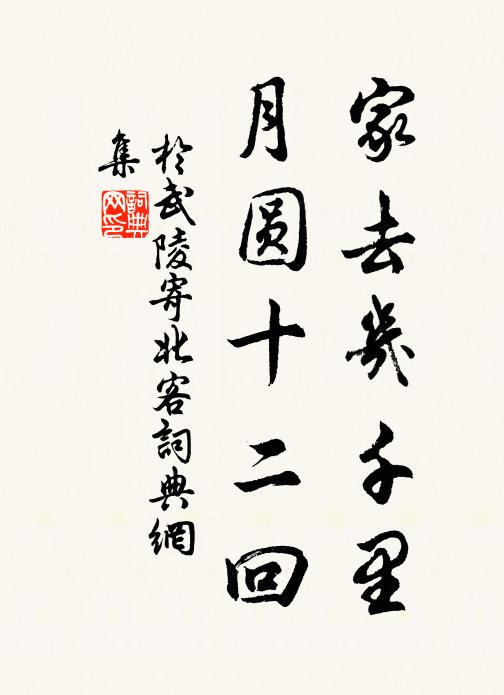 家去幾千里
月圓十二回
於武陵寄北客詞典網
集
詞典
网印